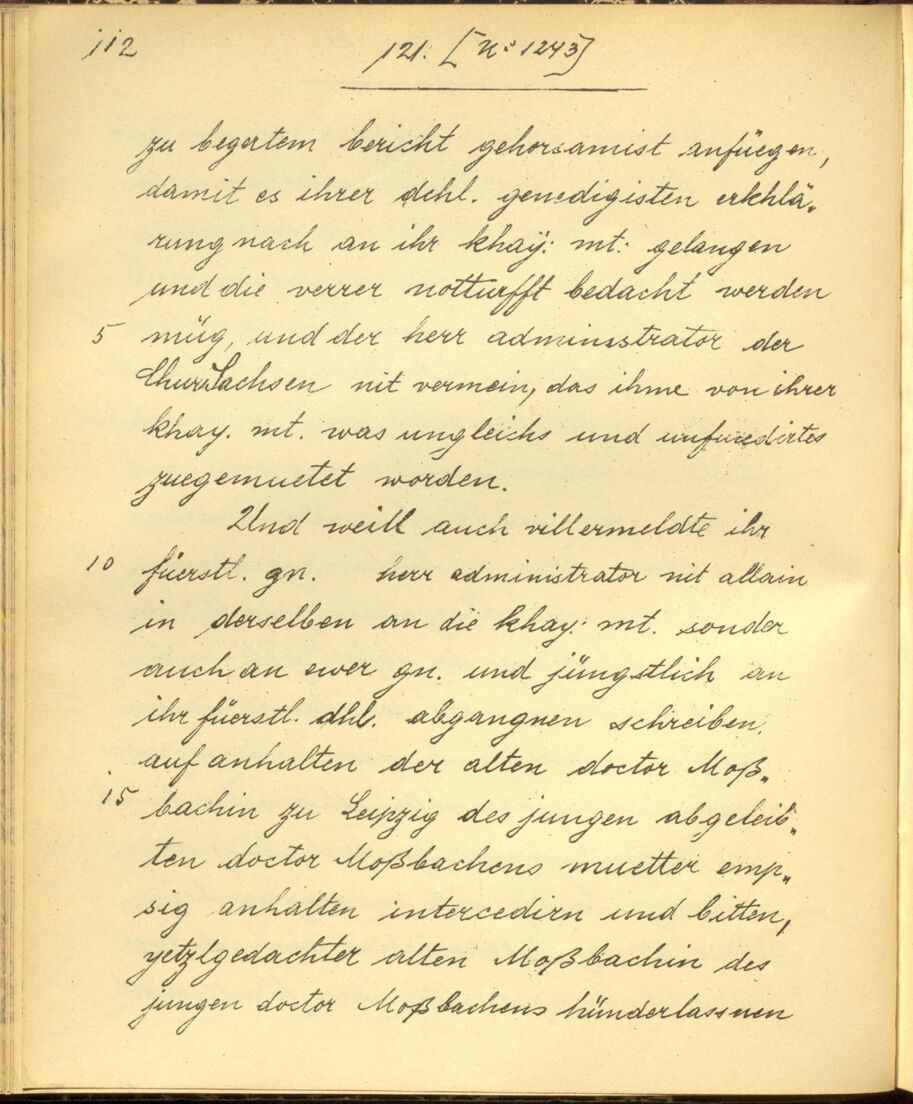 112
121. [No 1243]
zu begertem bericht gehorsamist anfüegen,
damit es ihrer dchl. genedigisten erkhlä„
rung nach an ihr khaÿ: mt: gelangen
und die verrer notturfft bedacht werden
5 müg, und der herr administrator der
ChurSachsen nit vermein, das ihme von ihrer
khay. mt. was ungleichs und unfundirtes
zuegemuetet worden.
Und weill auch villermeldte ihr
10 füerstl. gn. herr administrator nit allain
in derselben an die khay: mt. sonder
auch an ewer gn. und jüngstlich an
ihr füerstl. dhl. abgangnen schreiben.
auf anhalten der alten doctor Moß„
15 bachin zu Leipzig des jungen abgeleib„
ten doctor Moßbachens muetter emp„
sig anhalten intercedirn und bitten,
yetzlgedachter alten Moßbachin des
jungen doctor Moßbachens hünderlassnen